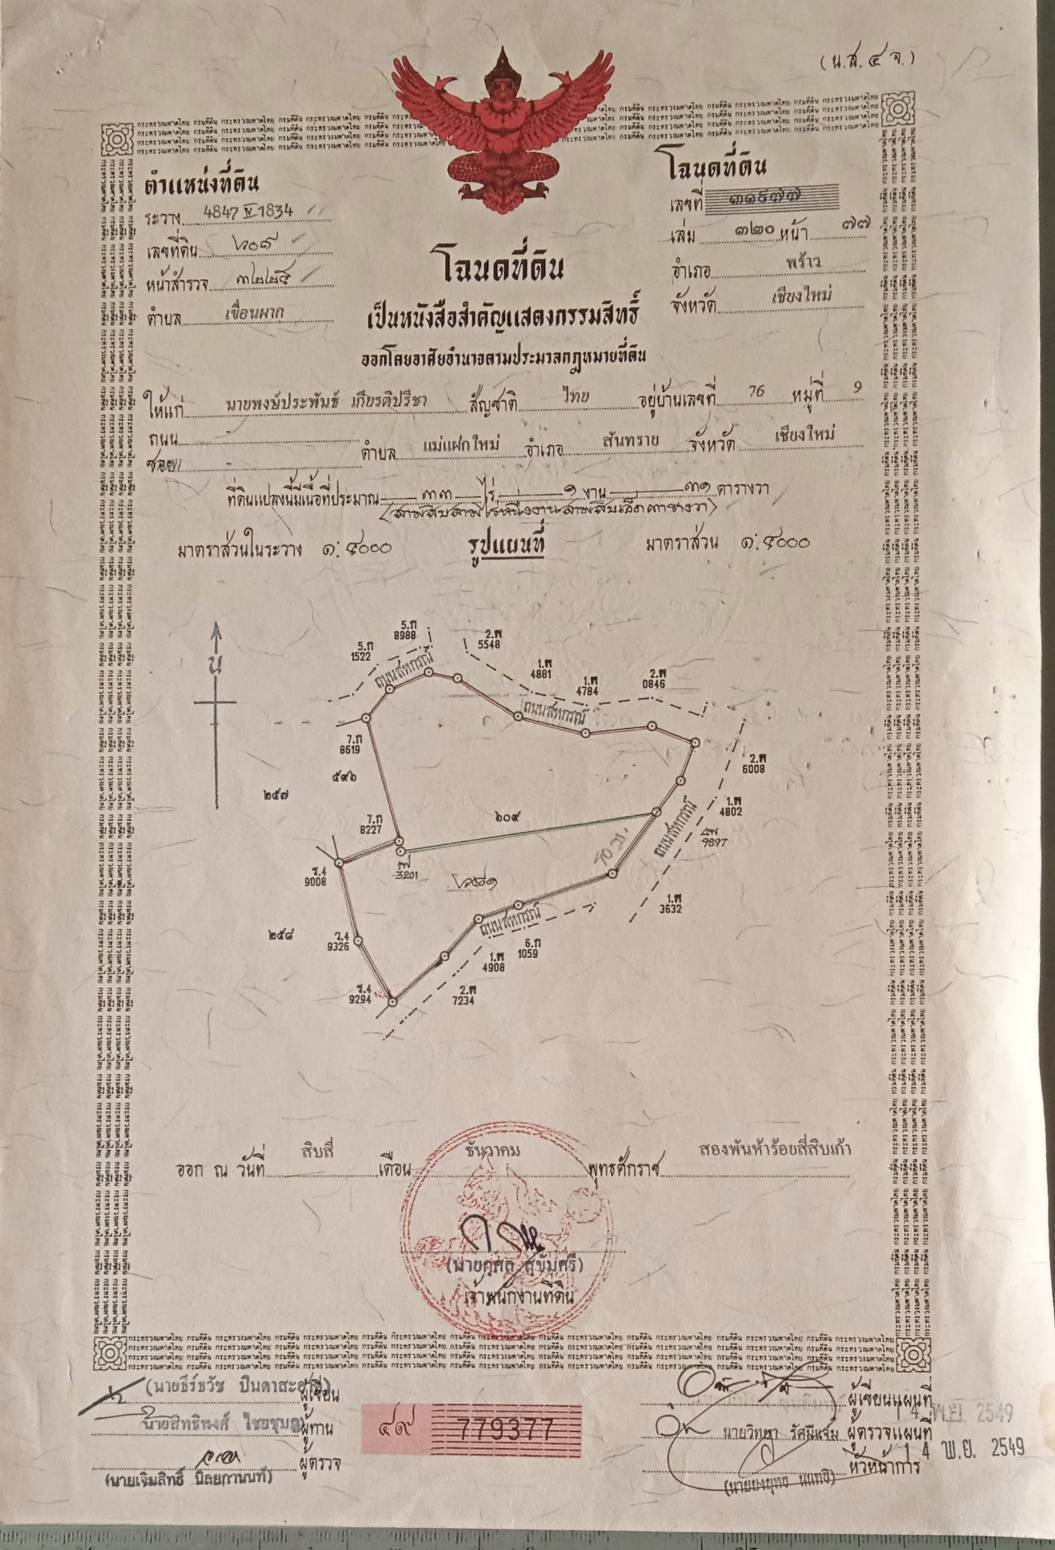 (น.ส. ๔ จ.)
ตำแหน่งที่ดิน
ระวาง 4847 IV 1834
เลขที่ดิน ๖๐๘
หน้าสำรวจ ๓๒๒๕
ตำบล เขื่อนผาก
โฉนดที่ดิน
เลขที่
เล่ม ๓๒๐ หน้า ๗๗
อำเภอ พร้าว
จังหวัด เชียงใหม่
โฉนดที่ดิน
เป็นหนังสือสำคัญแสดงกรรมสิทธิ์
ออกโดยอาศัยอำนาจตามประมวลกฎหมายที่ดิน
ให้แก่ นายพงษ์ประพันธ์ เกียรติปรีชา สัญชาติ ไทย อยู่บ้านเลขที่ 76 หมู่ที่ 9
ถนน -
ซอย - ตำบล แม่แฝกใหม่ อำเภอ สันทราย จังหวัด เชียงใหม่
ที่ดินแปลงนี้มีเนื้อที่ประมาณ ๓๓ ไร่ ๑ งาน ๓๑ ตารางวา
(สามสิบสามไร่หนึ่งงานสามสิบเอ็ดตารางวา)
มาตราส่วนในระวาง ๑:๔๐๐๐ รูปแผนที่ มาตราส่วน ๑:๔๐๐๐
น
5.ก
8988
5.ก
1522
ถนนสหกรณ์
2.พ
5548
1.พ
4881
1.พ
4784
2.พ
0846
ถนนสหกรณ์
7.ก
8619
๕๙๖
๒๕๗
2.พ
6008
1.พ
4802
7.ก
8227
๖๐๙
ถนนสหกรณ์
9897
3201
9008
1.พ
3632
๒๕๘
9326
ถนนสหกรณ์
6.ก
1059
1.พ
4908
9294
2.พ
7234
ออก ณ วันที่ สิบสี่ เดือน ธันวาคม พุทธศักราช สองพันห้าร้อยสี่สิบเก้า
(นายกุศล สุขัมศรี)
เจ้าพนักงานที่ดิน
ผู้เขียน
ผู้ทาน
ผู้ตรวจ
๔๙ 779377
ผู้เขียนแผนที่
14 พ.ย. 2549
นายวิทยา รัศมีแจ่ม ผู้ตรวจแผนที่
14 พ.ย. 2549
หัวหน้าการ